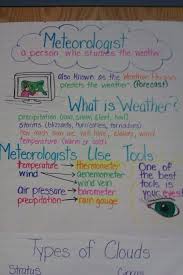 Meteorologist
a person who studies the weather
also known as the weather
predicts the weather. (forecast)
What is Weather?
precipitation (rain, snow, sleet, hail)
storms (blizzards, hurricanes, tornadoes)
temperature (warm or cold)
Meteorologists Use Tools
temperature → thermometer
wind → anemometer
wind vein
air pressure → barometer
precipitation → rain gauge
One of
the best
tools is
your eyes!
Types of Clouds
Stratus